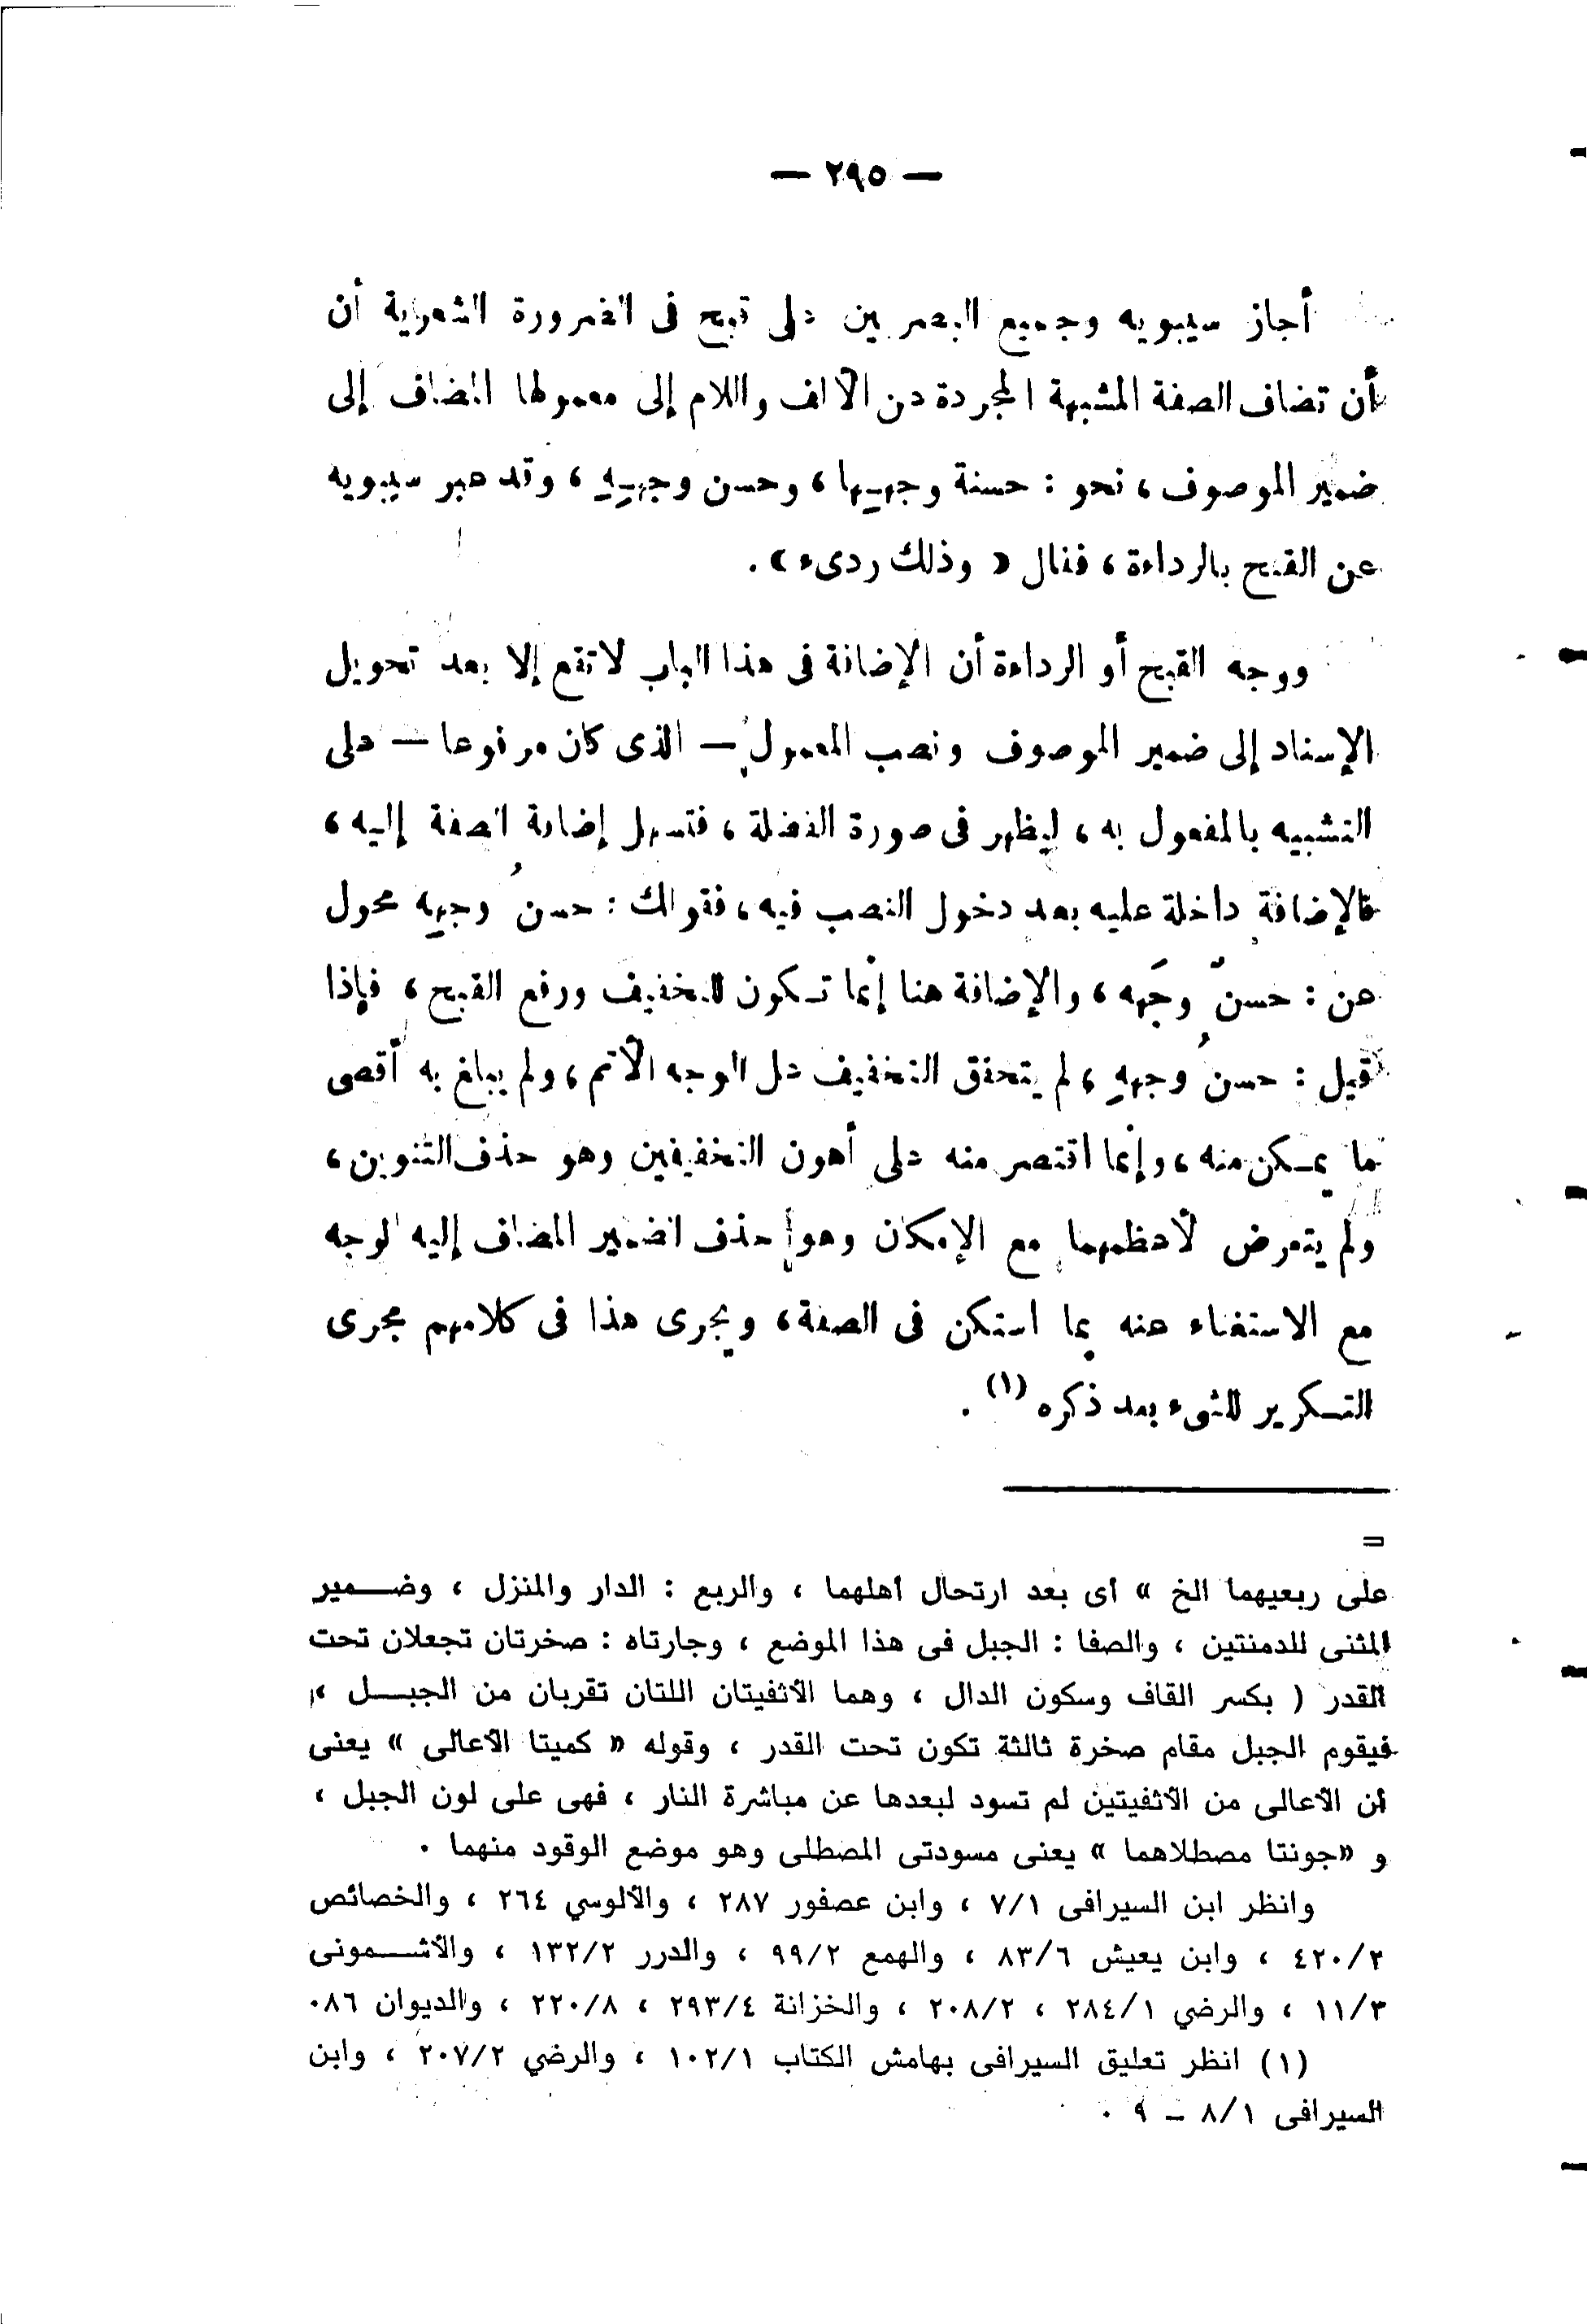 — ٢٩٥ —
أجاز سيبويه وجميع البصريين على قبح فى الضرورة الشعرية أن
أن تضاف الصفة المشبهة المجردة من الألف واللام إلى معمولها المضاف إلى
ضمير الموصوف ، نحو : حسنة وجهِها ، وحسن وجهِهِ ، وقد عبر سيبويه
عن القبح بالرداءة ، فقال « وذلك ردىء » .
ووجه القبح أو الرداءة أن الإضافة فى هذا الباب لا تقع إلا بعد تحويل
الإسناد إلى ضمير الموصوف ونصب المعمول — الذى كان مرفوعا — على
التشبيه بالمفعول به ، ليظهر فى صورة الفضلة ، فتسهل إضافة الصفة إليه ،
فالإضافة داخلة عليه بعد دخول النصب فيه ، فقولك : حسنُ وجهِه محول
عن : حسنٌ وجهَه ، والإضافة هنا إنما تكون للتخفيف ورفع القبح ، فإذا
قيل : حسنُ وجهِهِ ، لم يتحقق التخفيف على الوجه الأتم ، ولم يبلغ به أقصى
ما يمكن منه ، وإنما اقتصر منه على أهون التخفيفين وهو حذف التنوين ،
ولم يتعرض لأعظمهما مع الإمكان وهو حذف الضمير المضاف إليه الوجه
مع الاستغناء عنه بما استكن فى الصفة ، ويجرى هذا فى كلامهم مجرى
التكرير للشىء بعد ذكره (١) .
=
على ربعيهما الخ » أى بعد ارتحال أهلهما ، والربع : الدار والمنزل ، وضمير
المثنى للدمنتين ، والصفا : الجبل فى هذا الموضع ، وجارتاه : صخرتان تجعلان تحت
القدر ( بكسر القاف وسكون الدال ، وهما الأثفيتان اللتان تقربان من الجبل ،
فيقوم الجبل مقام صخرة ثالثة تكون تحت القدر ، وقوله « كميتا الأعالى » يعنى
أن الأعالى من الأثفيتين لم تسود لبعدها عن مباشرة النار ، فهى على لون الجبل ،
و «جونتا مصطلاهما » يعنى مسودتى المصطلى وهو موضع الوقود منهما .
وانظر ابن السيرافى ٧/١ ، وابن عصفور ٢٨٧ ، والألوسي ٢٦٤ ، والخصائص
٤٢٠/٢ ، وابن يعيش ٨٣/٦ ، والهمع ٩٩/٢ ، والدرر ١٣٢/٢ ، والأشمونى
١١/٣ ، والرضي ٢٨٤/١ ، ٢٠٨/٢ ، والخزانة ٢٩٣/٤ ، ٢٢٠/٨ ، والديوان ٨٦.
(١) انظر تعليق السيرافى بهامش الكتاب ١٠٢/١ ، والرضي ٢٠٧/٢ ، وابن
السيرافى ٨/١ – ٩ .